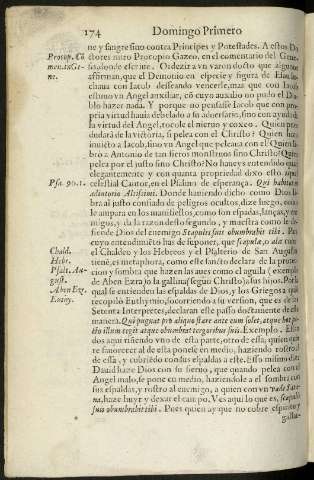 174 Domingo Primero
ne y sangre sino contra Principes y Potestades. A estos
Procop. Cō ctores miro Procopio Gazeo, en el comentario del Gene-
men. in Ge- sis, donde escriue. Ordezir a vn varon docto que algunos
ne. afirman, que el Demonio en especie y figura de Elau lu-
chaua con Iacob desseando vencerle, mas que con Iacob
estaua vn Angel auxiliar, cō cuyo auxilio no pudo el Dia-
blo hazer nada. Y porque no pensasse Iacob que con pro-
pria virtud hauia debelado a su aduersario, sino con ayuda de
la virtud del Angel, tocole el nieruo y coxeo. Quien pues
dudará de la victoria, si pelea con el Christo? Quien
inuicto a Iacob, sino vn Angel que peleaua con el? Quien li-
bro a Antonio de tan fieros monstruos sino Christo? Quien
pelea por el justo sino Christo? No haueys entendido que
elegantemente y con quanta propriedad dixo esto aquel
Psa. 90. 1. celestial Cantor, en el Psalmo de esperança. Qui habitat in
adiutorio Altissimi. Donde hauiendo dicho como Dios li-
bra al justo confiado de peligros ocultos, dize luego, como
le ampara en los manifiestos, como son espadas, lanças, y ene-
migos, y da la razon desto segundo, y muestra como le de-
fiende Dios del enemigo Scapulis suis obumbrabit tibi. Para
cuyo entendimiēto has de suponer, que scapulæ, o ala como
Chald. el Chaldeo y los Hebreos y el Psalterio de San Augustin
Hebr. tiene, es metaphora, como este sancto declara de la protec-
Psalt. Au- cion y sombra que hazen las aues como el aguila (exemplo
gust. de Aben Ezra) o la gallina (segun Christo) a sus hijos. Por lo
Aben Ezr. qual se entienden las espaldas de Dios, y los Griegos a que
Eutihy. recopiló Euthymio, socorriendo a su version, que es de los
Setenta Interpretes, declaran este passo doctamente de esta
manera. Qui pugnat pro aliquo stare ante eum solet, atque hac pac-
to illum tegit atque obumbrat tergoribus suis. Exemplo. Estan
dos aqui riñendo vno de esta parte, otro de essa, quien quie-
re fauorecer al de esta ponese en medio, haziendo rostro al
de essa, y cubriēdo con sus espaldas a este. Esso mismo dize
Dauid haze Dios con su sieruo, que quando pelea con el
Angel malo, se pone en medio, haziendole a el sombra con
sus espaldas, y rostro al enemigo, a quien con vn vade Sata-
na, haze huyr y dexar el campo. Ves aqui lo que es, scapulis
suis obumbrabit tibi. Pues quien ay que no cobre espiritu y